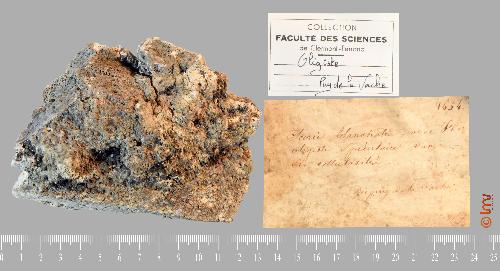 COLLECTION
FACULTÉ DES SCIENCES
de Clermont-Ferrand
Oligiste
Puy de la Vache
1634
Scorie blanchâtre avec fer
oligiste
cellulosités
Puy de la Vache
© lmv
0 1 2 3 4 5 6 7 8 9 10 11 12 13 14 15 16 17 18 19 20 21 22 23 24 25